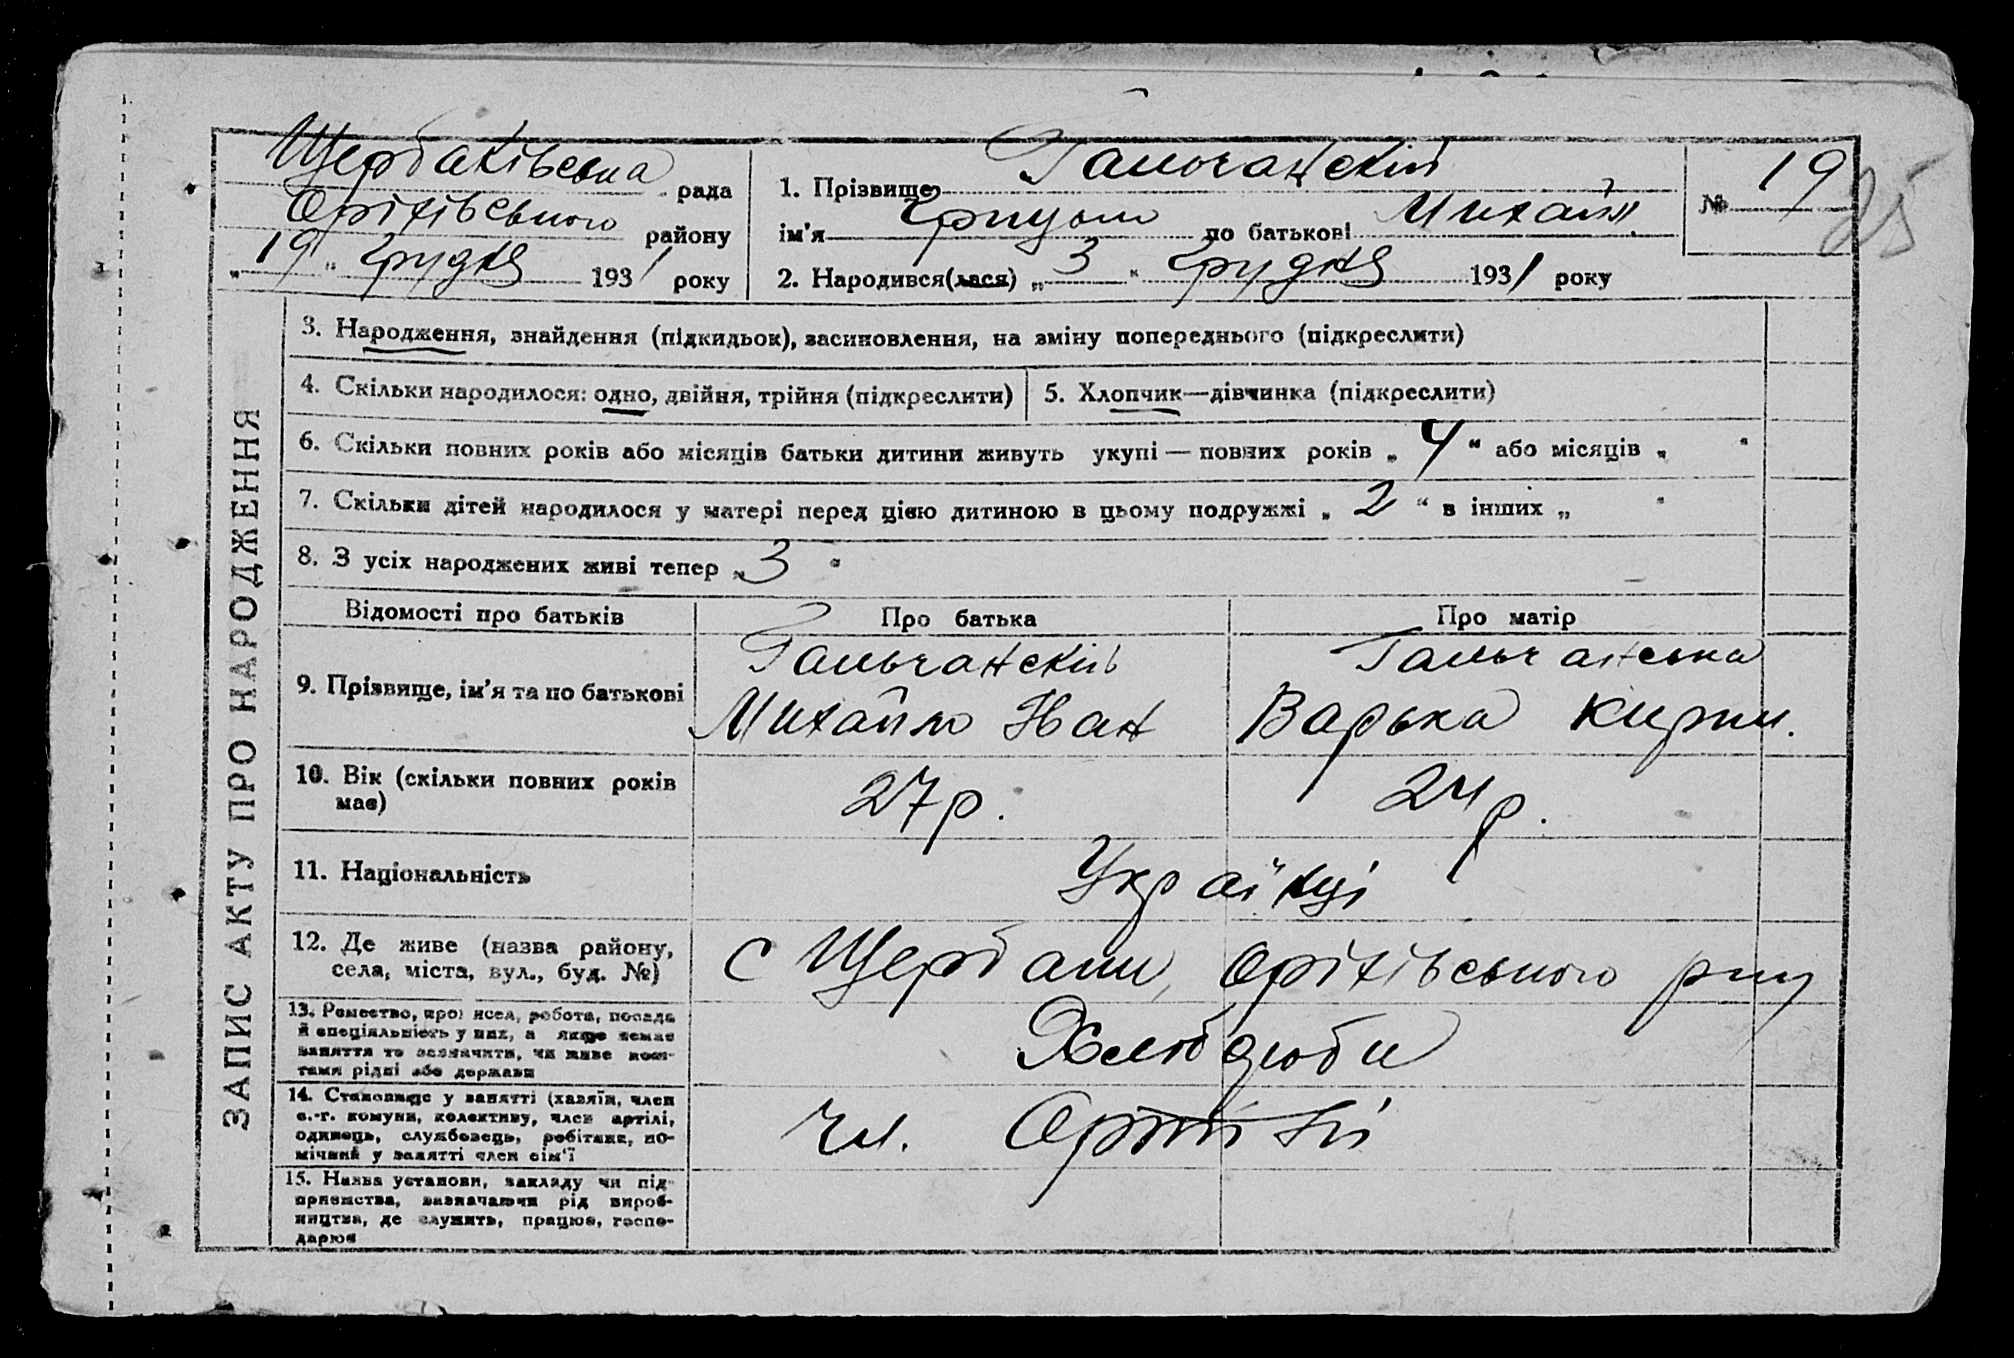 Щербаківська рада
Оріхівського району
„19“ Грудня 1931 року
1. Прізвище Гальчанский
ім'я Грицько по батькові Михайл.
2. Народився(лася) „3“ Грудня 1931 року
№ 19
25
ЗАПИС АКТУ ПРО НАРОДЖЕННЯ
3. Народження, знайдення (підкидьок), засиновлення, на зміну попереднього (підкреслити)
4. Скільки народилося: одно, двійня, трійня (підкреслити)
5. Хлопчик—дівчинка (підкреслити)
6. Скільки повних років або місяців батьки дитини живуть укупі — повних років „4“ або місяців „ “
7. Скільки дітей народилося у матері перед цією дитиною в цьому подружжі „2“ в інших „ “
8. З усіх народжених живі тепер „3“
Відомості про батьків
Про батька
Про матір
9. Прізвище, ім'я та по батькові
Гальчанский
Михайло Иван
Гальчанська
Варька Кирил.
10. Вік (скільки повних років
має)
27 р.
24 р.
11. Національність
Українці
12. Де живе (назва району,
села, міста, вул., буд. №)
с Щербаки, Оріхівського р-ну
13. Ремество, професія, робота, посада
й спеціяльність у них, а якщо немає
заняття то зазначити, чи живе кош-
тами рідні або держави
Хлібороби
14. Становище у занятті (хазяїн, член
с.-г. комуни, колективу, член артілі,
одинець, службовець, робітник, по-
мічний у занятті член сім'ї
чл. Артілі
15. Назва установи, закладу чи під-
приємства, визначаючи рід вироб-
ництва, де служить, працює, госпо-
дарює